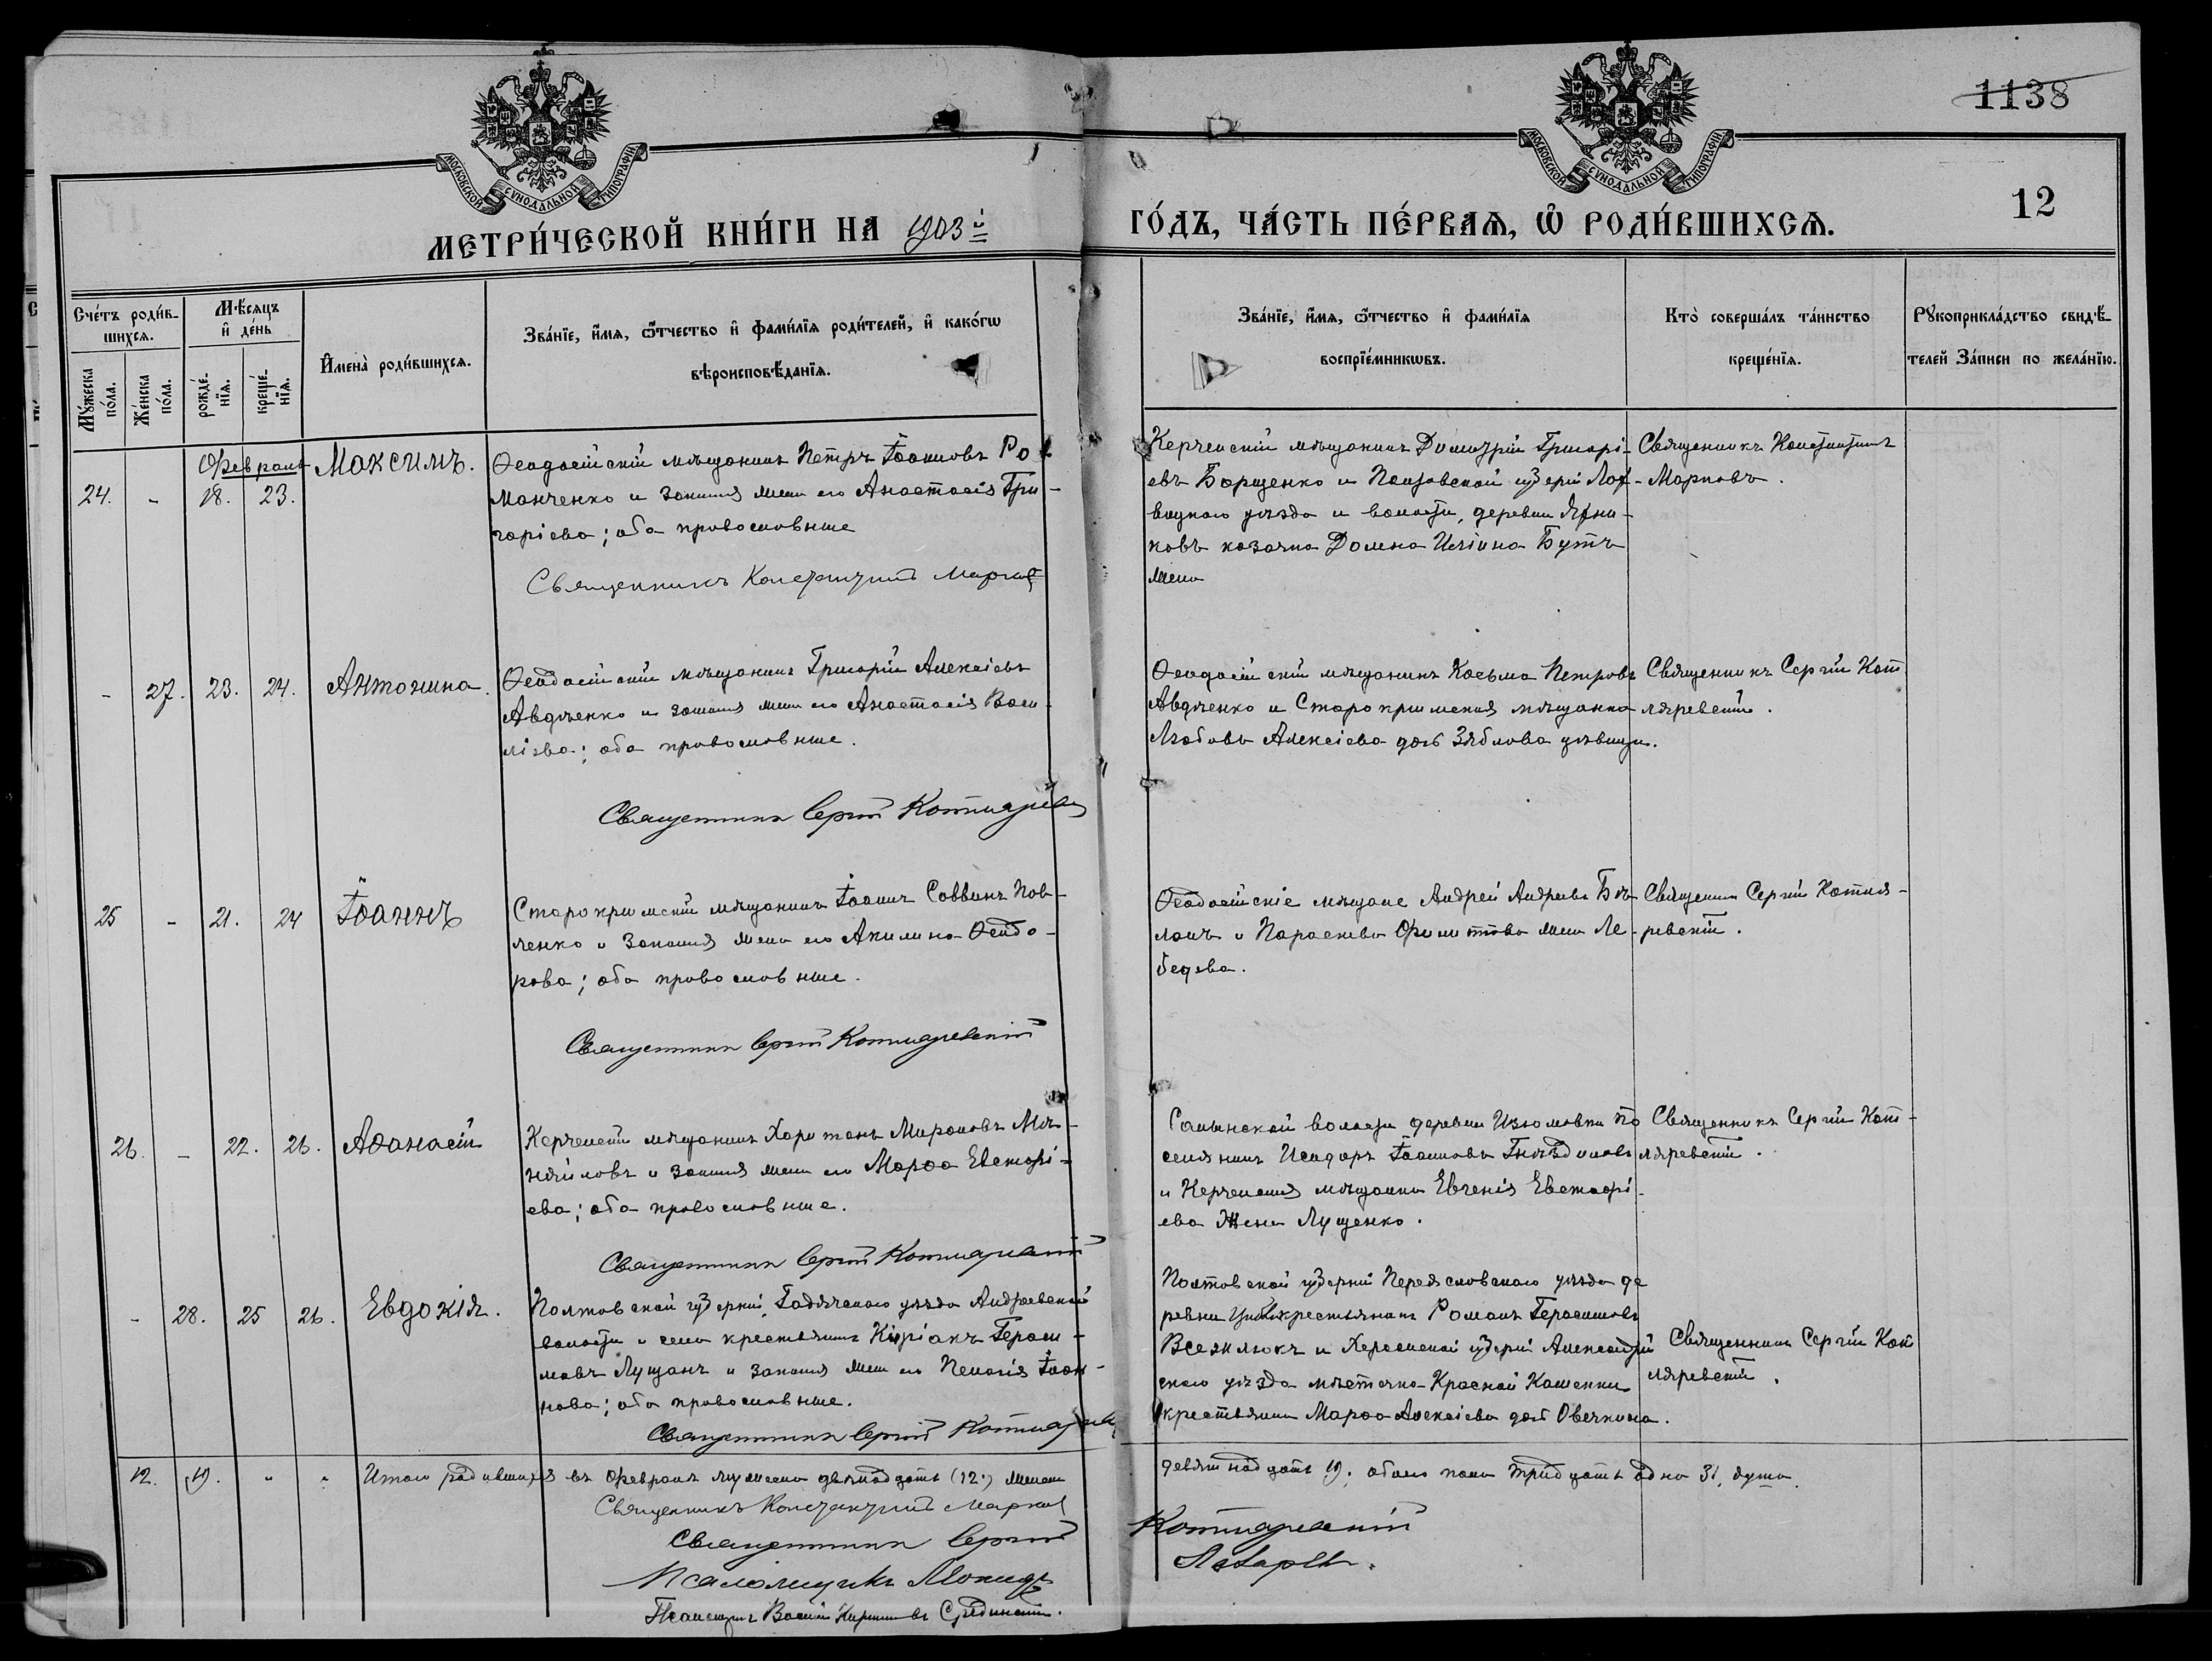 1138
12
МОСКОВСКОЙ СѴНОДАЛЬНОЙ ТИПОГРАФІИ
МОСКОВСКОЙ СѴНОДАЛЬНОЙ ТИПОГРАФІИ
МЕТРИ́ЧЕСКОЙ КНИ́ГИ НА 1903й
ГО́ДЪ, ЧА́СТЬ ПЕ́РВАѦ, Ѽ РОДИ́ВШИХСѦ.
Сче́тъ роди́в-
шихсѧ.
Мѣ́сѧцъ
и҆ де́нь
Мꙋ́жеска
по́ла.
Же́нска
по́ла.
рожде́-
нїѧ.
креще́-
нїѧ.
И҆мена̀ роди́вшихсѧ.
Зва́нїе, и҆́мѧ, ѻ҆́тчество и҆ фами́лїѧ роди́телей, и҆ како́гѡ
вѣроисповѣ́данїѧ.
Зва́нїе, и҆́мѧ, ѻ҆́тчество и҆ фами́лїѧ
воспрїе́мникѡвъ.
Кто̀ соверша́лъ та́инство
креще́нїѧ.
Рꙋкоприкла́дство свидѣ́-
телей за́писи по жела́нїю.
Февраль
24. - 18. 23.
Максимъ.
Ѳеодосійскій мѣщанинъ Петръ Іоанновъ Ро-
манченко и законная жена его Анастасія Гри-
горіева; оба православные
Священникъ Константинъ Марковъ
Керченскій мѣщанинъ Димитрій Григорі-
евъ Борщенко и Полтавской губерніи Лох-
вицкаго уѣзда и волости, деревни
ковъ казачка Домна Иліина Бутъ
жена
Священникъ Константинъ
Марковъ.
- 27. 23. 24.
Антонина.
Ѳеодосійскій мѣщанинъ Григорій Алексіевъ
Авдѣенко и законная жена его Анастасія Васи-
ліева; оба православные.
Священникъ Сергій Котляревскій
Ѳеодосійскій мѣщанинъ Косьма Петровъ
Авдѣенко и Старокрымская мѣщанка
Любовь Алексіева дочь Зяблова дѣвица.
Священникъ Сергій Кот
ляревскій.
25 - 21. 24
Іоаннъ
Старокрымскій мѣщанинъ Іоаннъ Саввинъ Пав-
ленко и законная жена его Акилина Ѳеодо-
рова; оба православные.
Священникъ Сергій Котляревскій
Ѳеодосійскіе мѣщане Андрей Андреевъ Бѣ-
лашъ и Параскева Филиппова жена Ле-
бедева.
Священникъ Сергій Котля-
ревскій.
26. - 22. 26.
Аѳанасій
Керченскій мѣщанинъ Харитонъ Мироновъ
и законная жена его Марѳа Евстаѳі-
ева; оба православные.
Священникъ Сергій Котляревскій
Салынской волости деревни Изюмовки по
селянинъ Исидоръ Іоанновъ Гнѣздиловъ
и Керченская мѣщанка Евгенія Евстаѳі-
ева жена Лущенко.
Священникъ Сергій Кот-
ляревскій.
- 28. 25 26.
Евдокія.
Полтавской губерніи, Гадячскаго уѣзда Андреевской
волости и села крестьянинъ Киріакъ Гераси-
мовъ Лущанъ и законная жена его Пелагія Іоан-
нова; оба православные.
Священникъ Сергій Котляревскій
Полтавской губерніи Переяславскаго уѣзда де
ревни крестьянинъ Романъ Герасимовъ
и Херсонской губерніи Александрій
скаго уѣзда мѣстечка Красной Каменки
крестьянка Марѳа Алексіева дочь Овечкина.
Священникъ Сергій Кот
ляревскій.
12. 19. " " Итого родившихся въ Февралѣ мужеска двѣнадцать (12.) женска
девятнадцать 19; обоего пола тридцать одна 31, душа.
Священникъ Константинъ Марковъ
Священникъ Сергій Котляревскій
Псаломщикъ Лазарев.
Псаломщикъ Василій Средински.